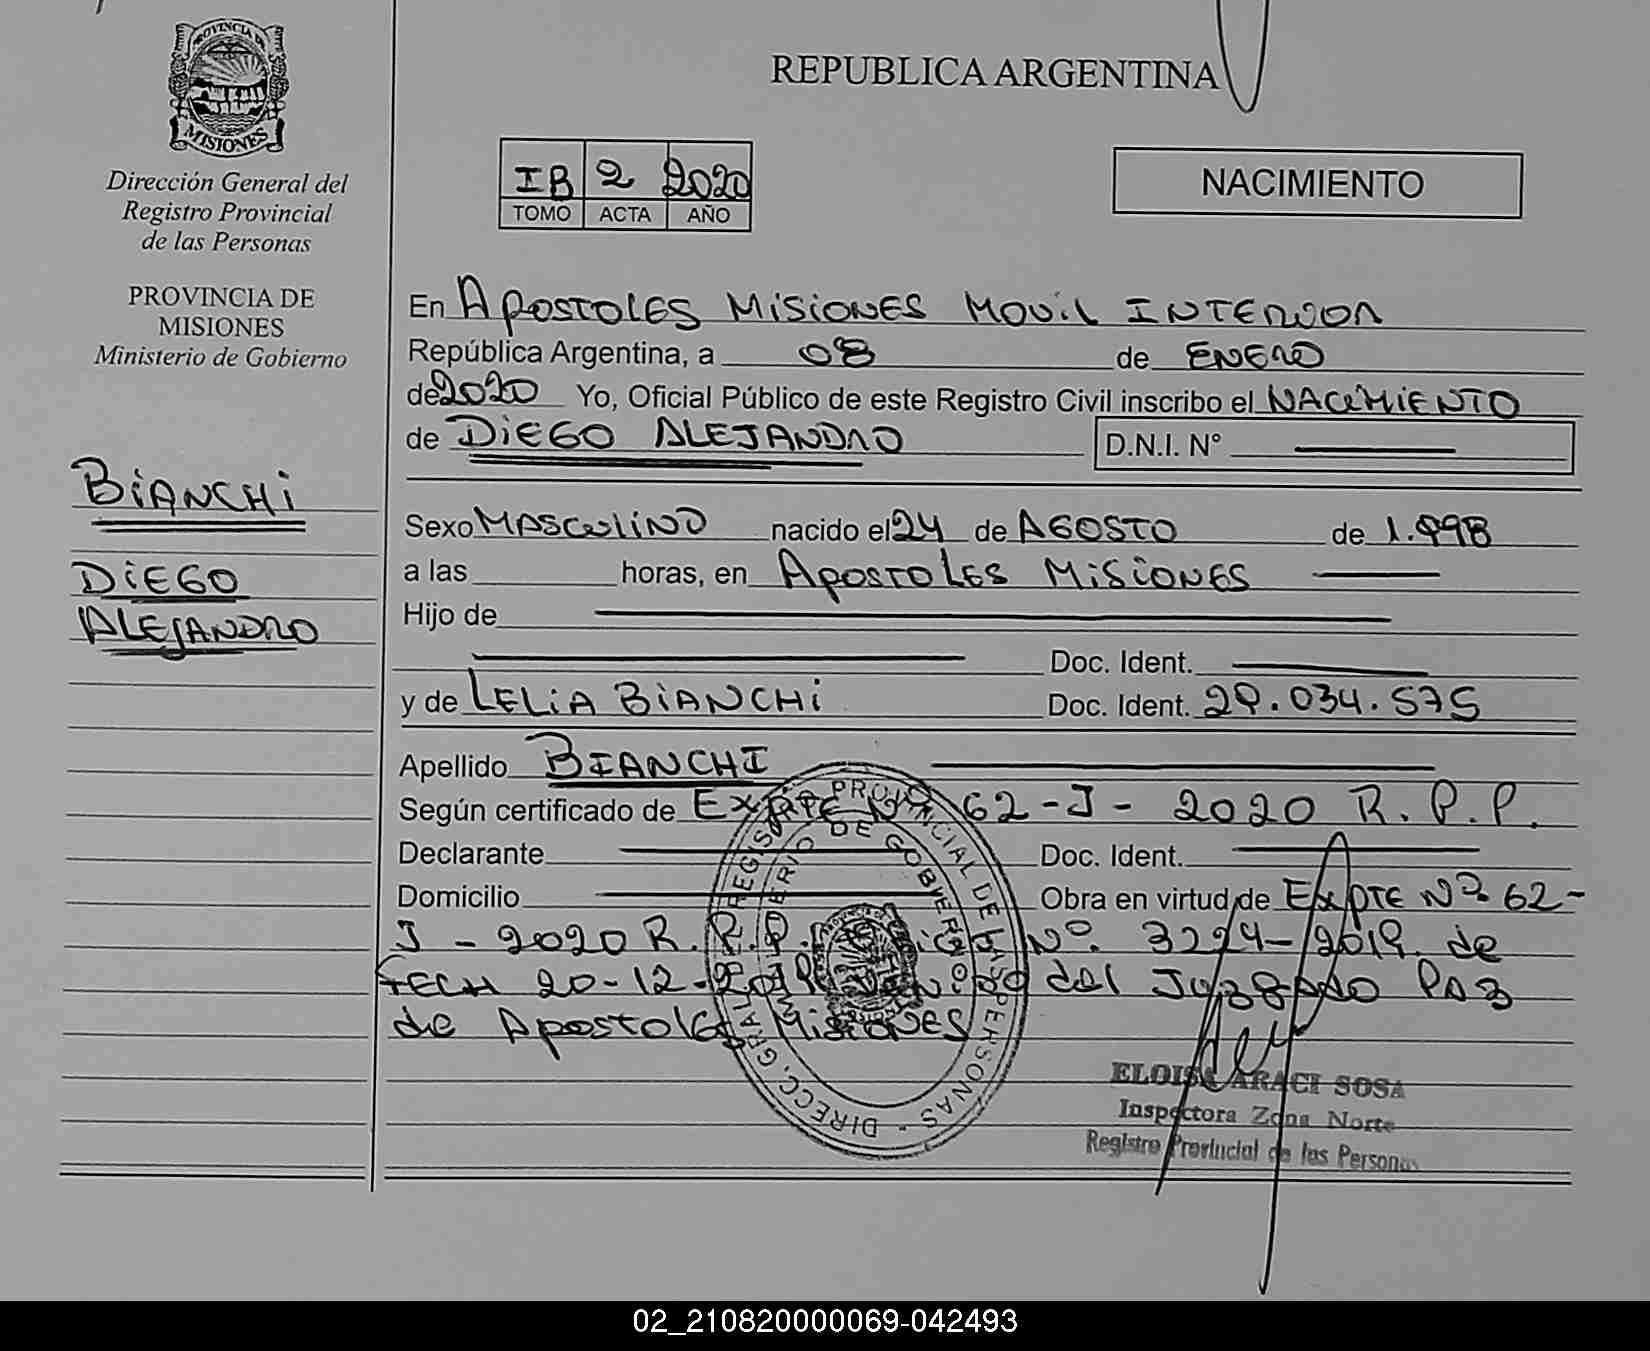 PROVINCIA DE
MISIONES
Dirección General del
Registro Provincial
de las Personas
PROVINCIA DE
MISIONES
Ministerio de Gobierno
BIANCHI
DIEGO
ALEJANDRO
REPUBLICA ARGENTINA
IB 2 2020
TOMO ACTA AÑO
NACIMIENTO
En APOSTOLES MISIONES MOVIL INTERIOR
República Argentina, a 08 de ENERO
de 2020 Yo, Oficial Público de este Registro Civil inscribo el NACIMIENTO
de DIEGO ALEJANDRO D.N.I. N°
Sexo MASCULINO nacido el 24 de AGOSTO de 1.998
a las horas, en APOSTOLES MISIONES
Hijo de
Doc. Ident.
y de LELIA BIANCHI Doc. Ident. 29.034.575
Apellido BIANCHI
Según certificado de EXPTE Nº 62-J-2020 R.P.P.
Declarante Doc. Ident.
Domicilio Obra en virtud de EXPTE Nº 62-
J-2020 R.R.P.P. Nº. 3294-2019 de
FECH 20-12-2019 del JUZGADO PAZ
de APOSTOLES MISIONES
DIRECC. GRAL. REGISTRO PROVINCIAL DE LAS PERSONAS -
MINISTERIO DE GOBIERNO
ELOISA ARACI SOSA
Inspectora Zona Norte
Registro Provincial de las Personas
02_210820000069-042493